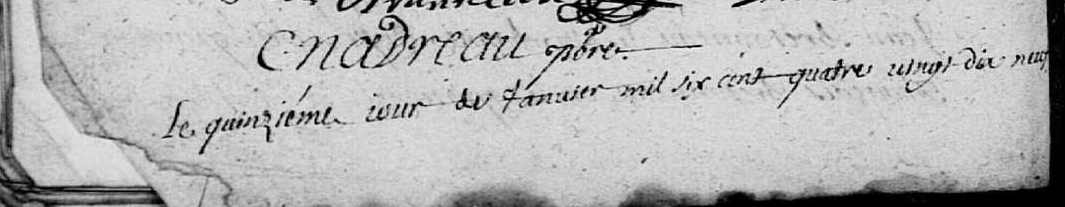 Cnadreau pbre
Le quinziéme iour de Januier mil six cent quatre uingt dix neuf